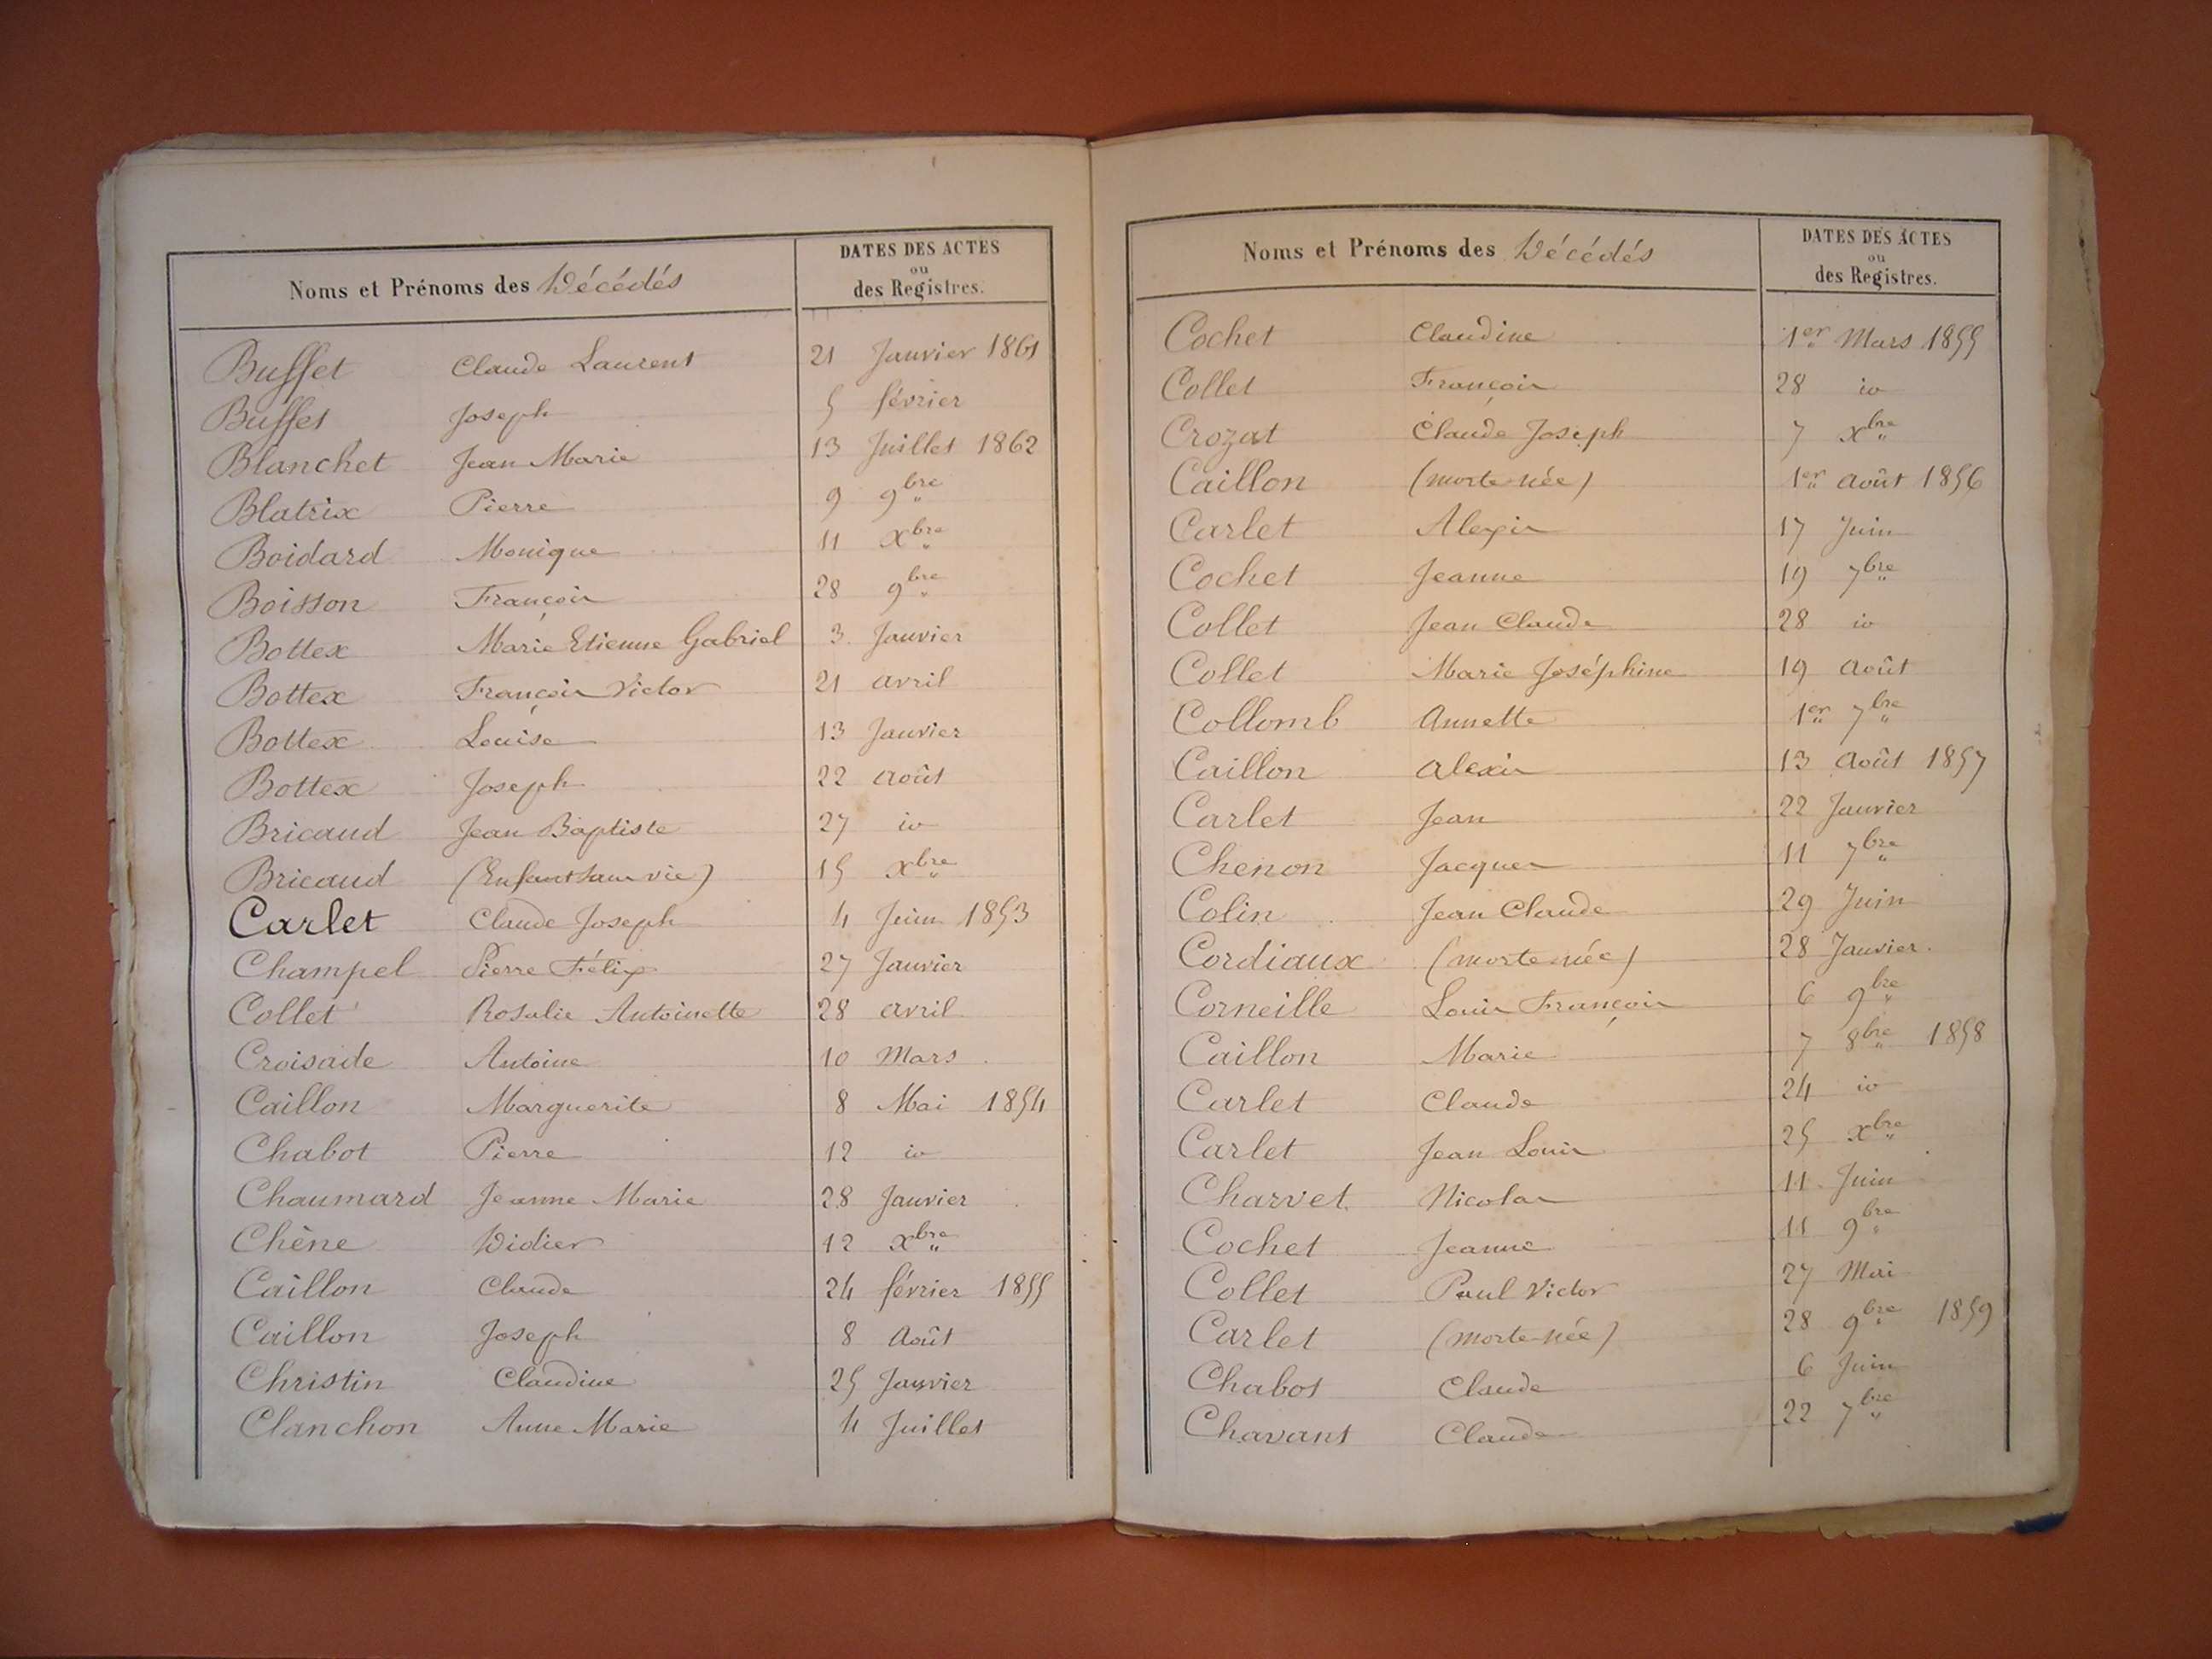 Noms et Prénoms des Décédés
DATES DES ACTES
ou
des Registres.
Buffet Claude Laurent 21 Janvier 1861
Buffet Joseph 5 février
Blanchet Jean Marie 13 Juillet 1862
Blatrix Pierre 9 9bre "
Boidard Monique 11 xbre "
Boisson François 28 9bre "
Bottex Marie Etienne Gabriel 3 Janvier
Bottex François Victor 21 avril
Bottex Louise 13 Janvier
Bottex Joseph 22 août
Bricaud Jean Baptiste 27 io
Bricaud (Enfant sans vie) 15 xbre "
Carlet Claude Joseph 4 Juin 1853
Champel Pierre Félix 27 Janvier
Collet Rosalie Antoinette 28 avril
Croisade Antoine 10 Mars
Caillon Marguerite 8 Mai 1854
Chabot Pierre 12 io
Chaumard Jeanne Marie 28 Janvier
Chêne Didier 12 xbre "
Caillon Claude 24 février 1855
Caillon Joseph 8 Août
Christin Claudine 25 Janvier
Clanchon Anne Marie 4 Juillet
Noms et Prénoms des Décédés
DATES DES ACTES
ou
des Registres.
Cochet Claudine 1er Mars 1855
Collet François 28 io
Crozat Claude Joseph 7 xbre "
Caillon (morte-née) 1er août 1856
Carlet Alexis 17 Juin
Cochet Jeanne 19 7bre "
Collet Jean Claude 28 io
Collet Marie Joséphine 19 août
Collomb Annette 1er 7bre "
Caillon alexis 13 août 1857
Carlet Jean 22 Janvier
Chenon Jacques 11 7bre "
Colin Jean Claude 29 Juin
Cordiaux (morte-née) 28 Janvier.
Corneille Louis François 6 9bre "
Caillon Marie 7 8bre " 1858
Carlet Claude 24 io
Carlet Jean Louis 25 xbre "
Charvet Nicolas 11 Juin
Cochet Jeanne 11 9bre "
Collet Paul Victor 27 Mai
Carlet (morte-née) 28 9bre " 1859
Chabot Claude 6 Juin
Chavant Claude 22 7bre "